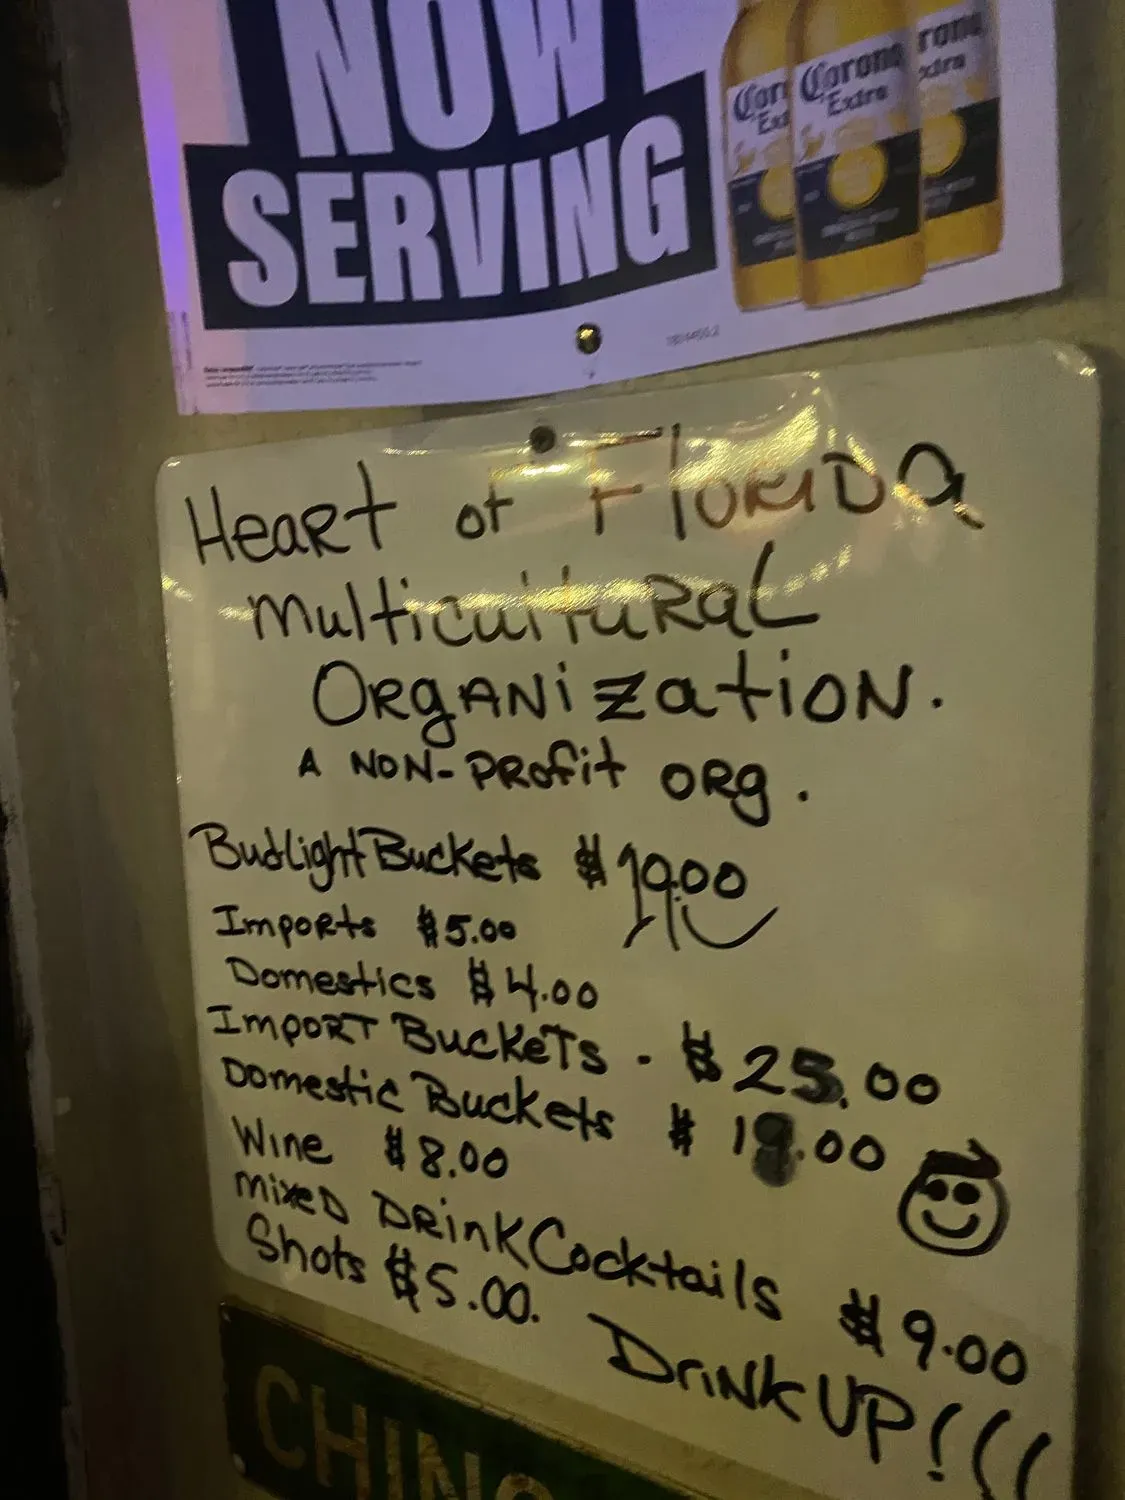 NOW
SERVING
Corona
Extra
Corona
Extra
Heart of Florida
Multicultural
Organization.
A NON-PROfit ORg.
Budlight Buckets $19.00
Imports $5.00
Domestics $4.00
IMPORT BuckeTs. $25.00
Domestic Buckets $19.00
Wine $8.00
Mixed DRink Cocktails $9.00
Shots $5.00.
DrinkUP!!!
CHINO